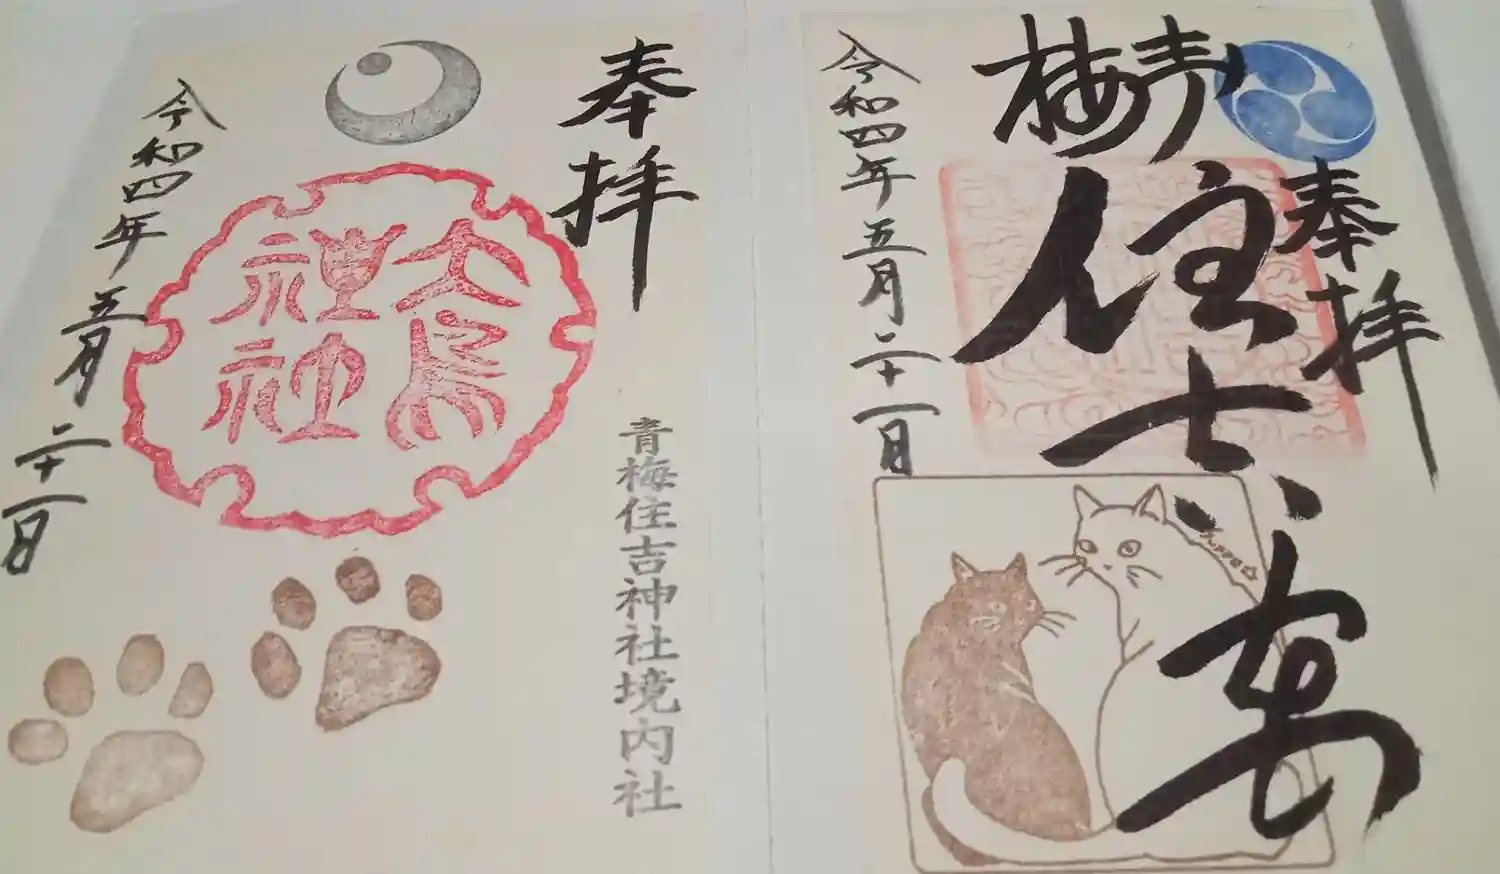 奉拝
青梅
住吉
令和四年五月二十一日
奉拝
青梅住吉神社境内社
大鳥
神社
令和四年五月二十一日